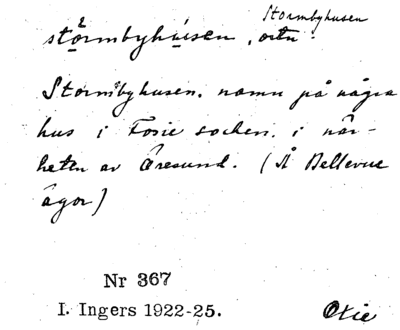 Stormbyhusen
störmbyhúsen, ortn.
Stormbyhusen. namn på några
hus i Fosie socken, i när-
heten av Öresund. (Å Bellevue
ägor)
Nr 367
I. Ingers 1922-25. Oxie